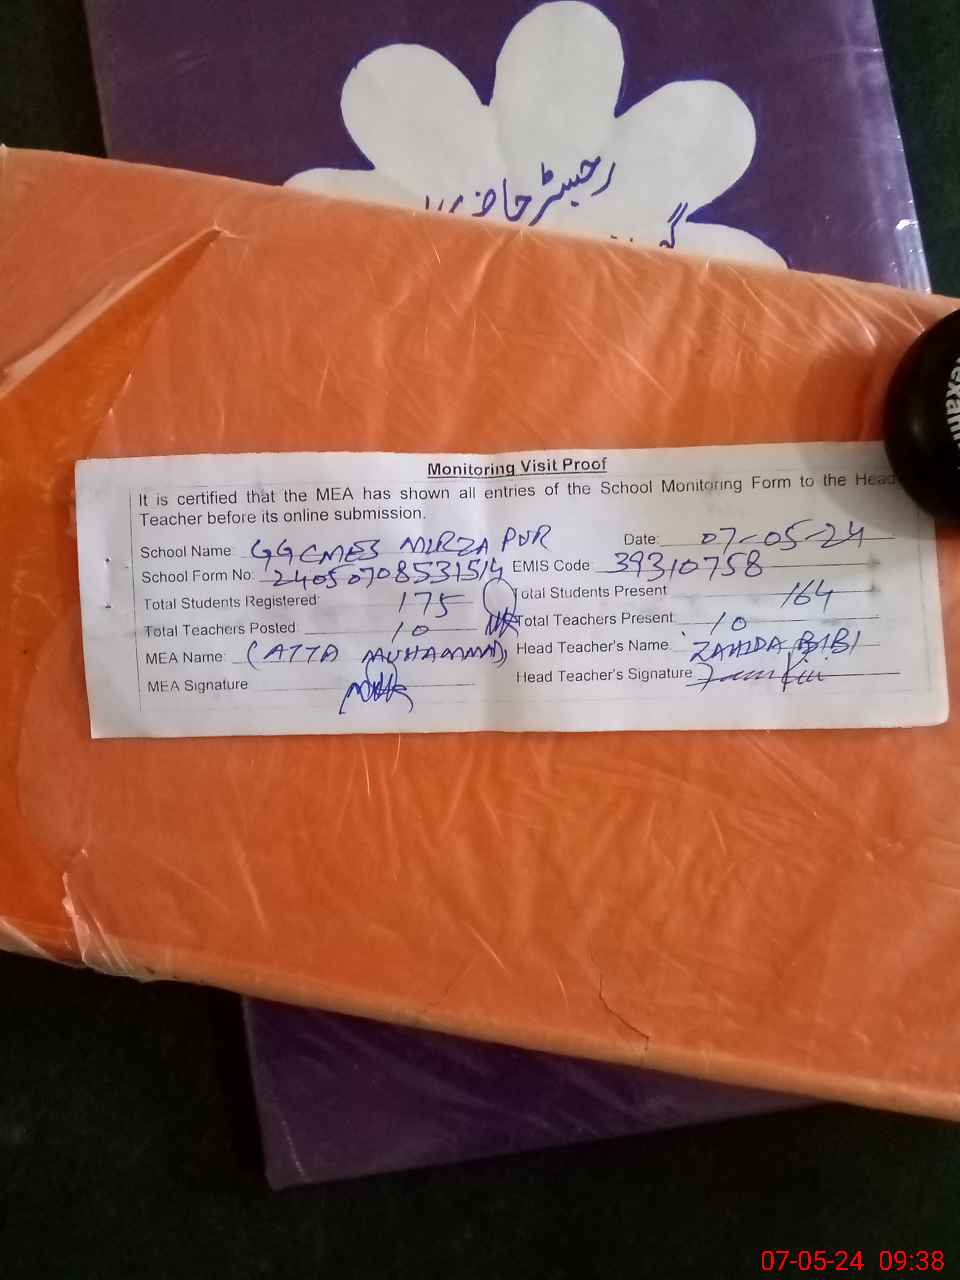 رجسٹر حاضری
Monitoring Visit Proof
It is certified that the MEA has shown all entries of the School Monitoring Form to the Head
Teacher before its online submission.
School Name: GGCMES MIRZA PUR Date: 07-05-24
School Form No: EMIS Code: 39310758
Total Students Registered: 175 Total Students Present 164
Total Teachers Posted 10 Total Teachers Present 10
MEA Name: (ATTA MUHAMMAD) Head Teacher's Name ZAHIDA BIBI
MEA Signature Head Teacher's Signature
07-05-24 09:38